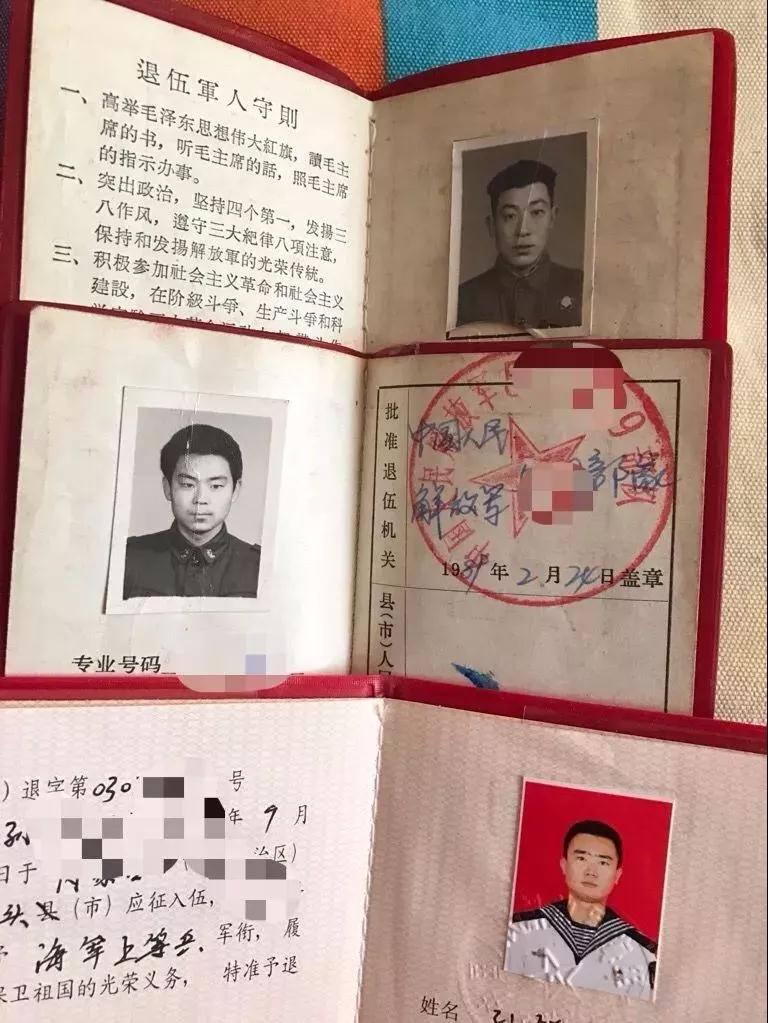 退伍軍人守則
一、高举毛泽东思想伟大紅旗，讀毛主
席的书，听毛主席的話，照毛主席
的指示办事。
二、突出政治，坚持四个第一，发揚三
八作风，遵守三大紀律八项注意，
保持和发揚解放軍的光荣传統。
三、积极参加社会主义革命和社会主义
建設，在阶級斗爭、生产斗爭和科
专业号码
批准退伍机关
中国人民
解放军
部
19 年 2 月 24 日盖章
县(市)人民
）退字第030 号
年 9 月
日于 治区)
头县(市)应征入伍，
海军上等兵 军衔，履
保卫祖国的光荣义务，特准予退
姓名